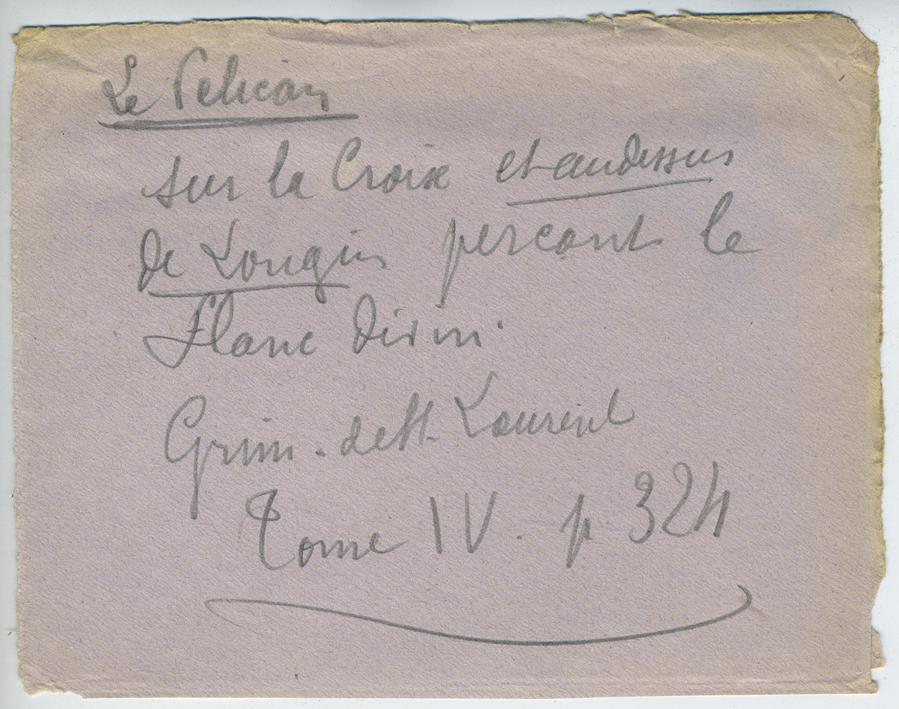 Le Pelican
sur la Croix et au dessus
de Longin perçant le
Flanc Divin.
Grim. de St. Laurent
Tome IV. p 324